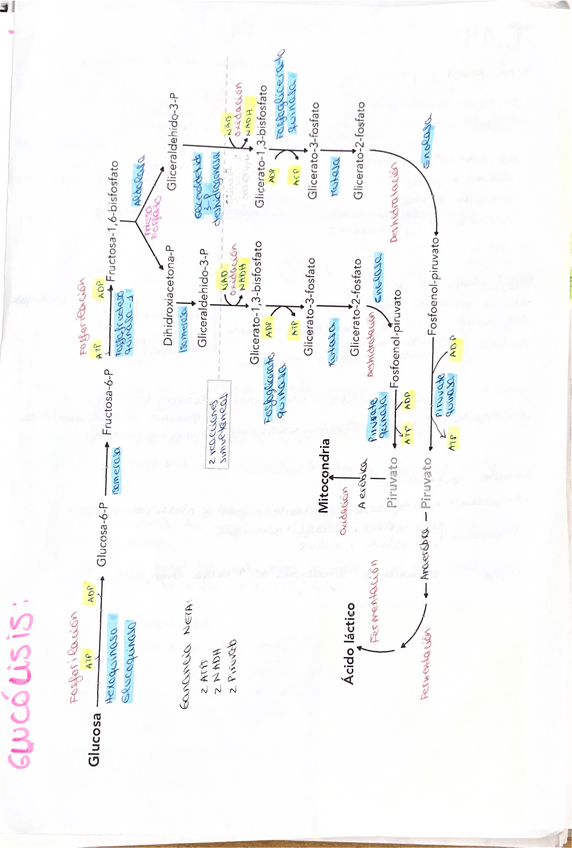 GLUCÓLISIS:
Glucosa
Fosforilación
ATP
ADP
Hexoquinasa
Glucoquinasa
Glucosa-6-P
Isomerasa
Fructosa-6-P
Fosforilación
ATP
ADP
Fosfofructo
quinasa-1
Fructosa-1,6-bisfosfato
Aldolasa
Triosa
Fosfato
Dihidroxiacetona-P
Isomerasa
Gliceraldehido-3-P
Gliceraldehido-3-P
Gliceraldehido
3-P
deshidrogenasa
2 reacciones
simultaneas
NAD
oxidación
NADH
NAD
oxidación
NADH
Glicerato-1,3-bisfosfato
Glicerato-1,3-bisfosfato
Fosfoglicerato
quinasa
ADP
ATP
Fosfoglicerato
quinasa
ADP
ATP
Glicerato-3-fosfato
Glicerato-3-fosfato
Mutasa
Mutasa
Glicerato-2-fosfato
Glicerato-2-fosfato
Deshidratación
Enolasa
Deshidratación
Enolasa
Fosfoenol-piruvato
Fosfoenol-piruvato
Piruvato
quinasa
ATP
ADP
Piruvato
quinasa
ATP
ADP
Piruvato
Piruvato
Aeróbica
oxidación
Mitocondria
Anaeróbica
Fermentación
Fermentación
Ácido láctico
Ganancia NETA:
2 ATP
2 NADH
2 Piruvato